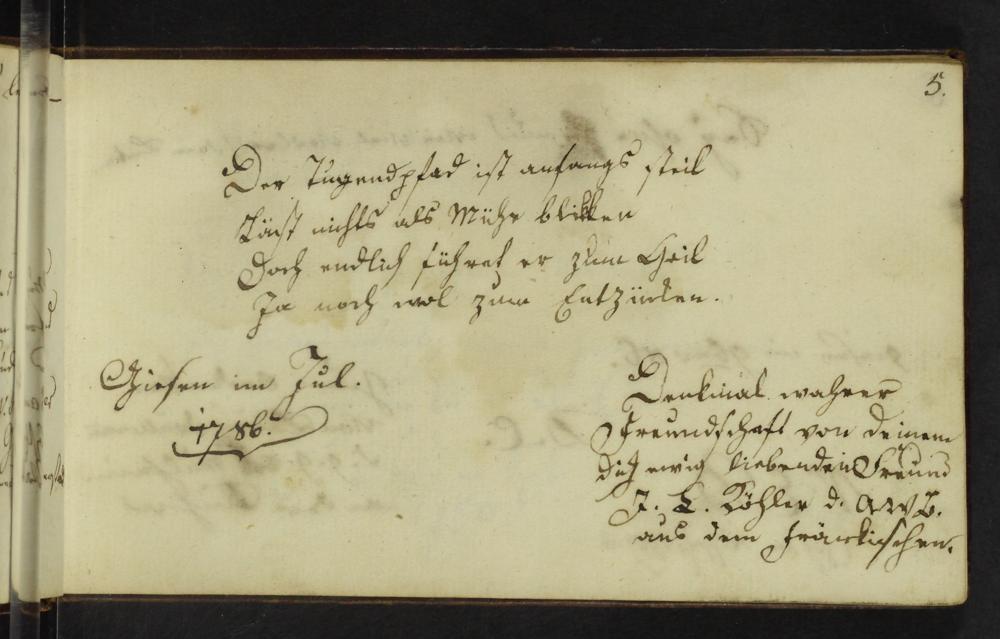 5.
Der Tugendpfad ist anfangs steil
Läst nichts als Mühe blikken
Doch endlich führet er zum Heil
Ja noch wol zum Entzücken.
Giesen im Jul.
1786.
Denkmal wahrer
Freundschaft von deinem
dich ewig liebenden Freund
J. L. Köhler d. G W B.
aus dem Fränkischen.